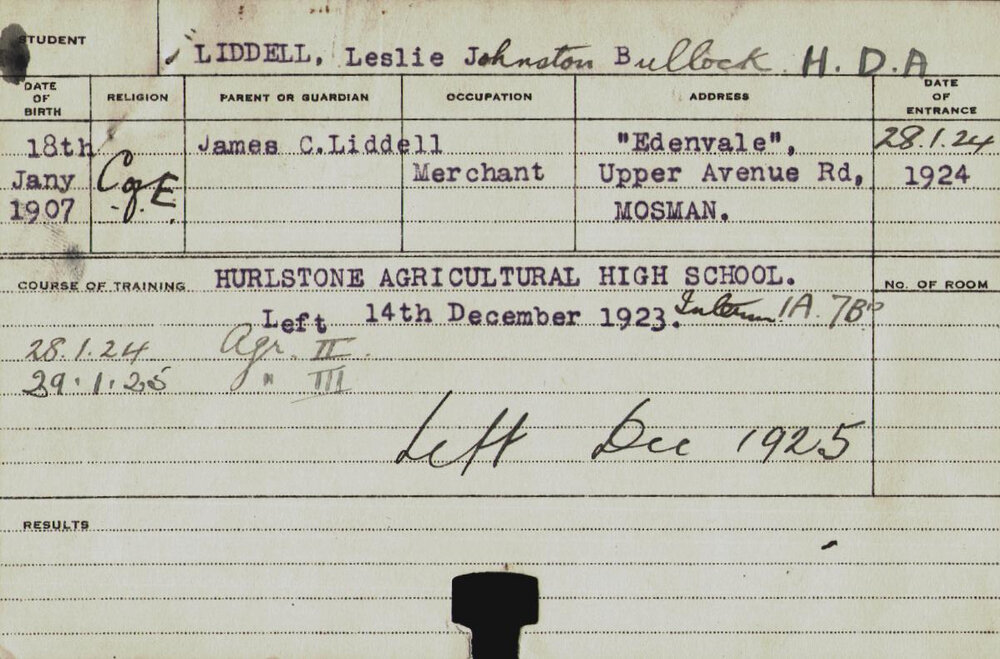 STUDENT LIDDELL, Leslie Johnston Bullock H.D.A
DATE OF BIRTH RELIGION PARENT OR GUARDIAN OCCUPATION ADDRESS DATE OF ENTRANCE
18th James C.Liddell "Edenvale", 28.1.24
Jany C of E. Merchant Upper Avenue Rd, 1924
1907 MOSMAN.
COURSE OF TRAINING HURLSTONE AGRICULTURAL HIGH SCHOOL. NO. OF ROOM
Left 14th December 1923. Interm. 1A. 7B's
28.1.24 Agr. II.
29.1.25 " III
Left Dec 1925
RESULTS